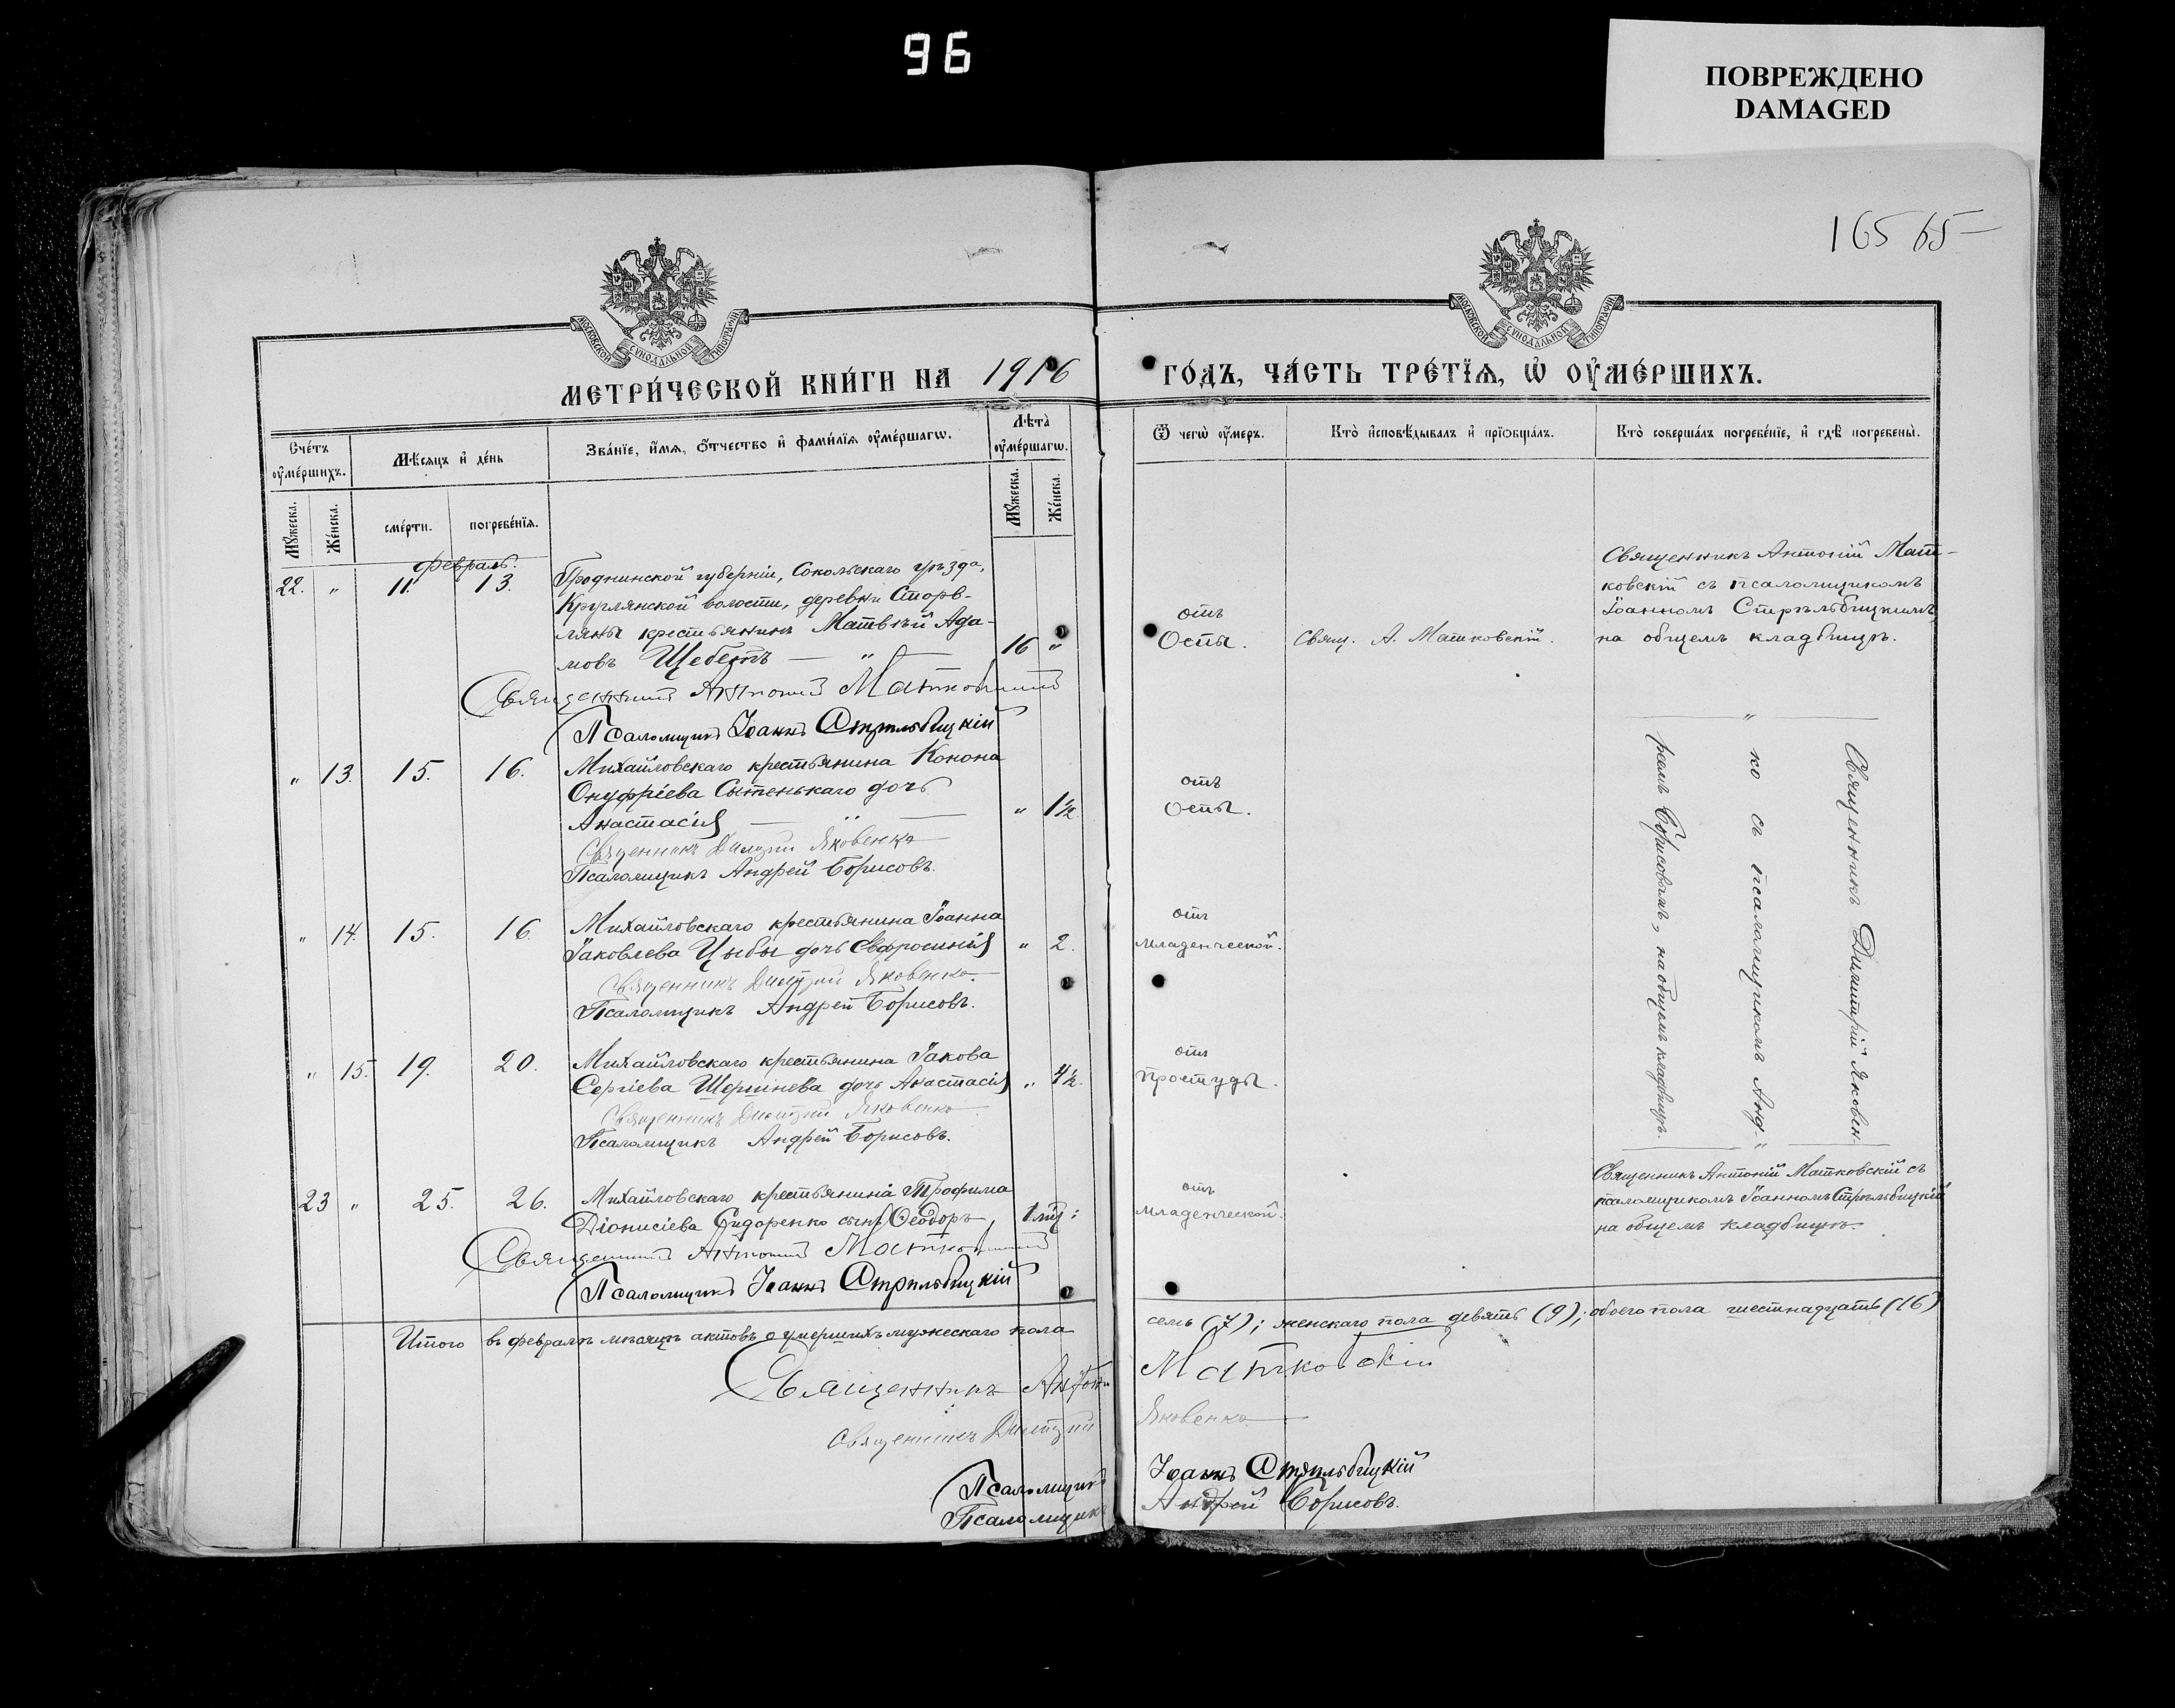 96
ПОВРЕЖДЕНО
DAMAGED
165 65
МОСКОВСКОЙ СУНОДАЛЬНОЙ ТИПОГРАФІИ
МОСКОВСКОЙ СУНОДАЛЬНОЙ ТИПОГРАФІИ
МЕТРИ́ЧЕСКОЙ КНИ́ГИ НА 1916 ГО́ДЪ, ЧА́СТЬ ТРЕ́ТЇѦ, Ѡ҆ ОУ҆МЕ́РШИХЪ.
Сче́тъ оу҆ме́ршихъ.
Мꙋ́жеска.
Же́нска.
Мѣ́сяцъ и҆ де́нь
сме́рти.
погребе́нїѧ.
Зва́нїе, и҆́мѧ, ѻ҆́тчество и҆ фами́лїѧ оу҆ме́ршагѡ.
Лѣ́та̀ оу҆ме́ршагѡ.
Мꙋ́жеска.
Же́нска.
Ѿ чегѡ̀ оу҆́меръ.
Кто̀ и҆сповѣ́дывалъ и҆ прїѻбща́лъ.
Кто̀ соверша́лъ погребе́нїе, и҆ гдѣ̀ погребены̀.
Февраль.
22. " 11. 13.
Гродненской губерніи, Сокольскаго уѣзда,
Круглянской волости, деревни Сторв-
ляны крестьянинъ Матвѣй Ада-
мовъ Щебетъ — " — 16 "
отъ
Оспы.
Свящ. А. Матковскій.
Священникъ Антоній Мат-
ковскій съ псаломщикомъ
Іоанномъ Стрѣльбицкимъ
на общемъ кладбищѣ.
Священникъ Антоній Матковскій
Псаломщикъ Іоаннъ Стрѣльбицкій
" 13. 15. 16.
Михайловскаго крестьянина Конона
Онуфріева Сытенькаго дочь
Анастасія — " — " 1½
отъ
Оспы.
Священникъ Димитрій Яковенко
Псаломщикъ Андрей Борисовъ.
Священникъ Димитрій Яковен-
ко съ псаломщикомъ Анд-
реемъ Борисовымъ, на общемъ кладбищѣ.
" 14. 15. 16.
Михайловскаго крестьянина Іоанна
Іаковлева Цыбы дочь Евфросинія " 2.
отъ
младенческой.
Священникъ Димитрій Яковенко.
Псаломщикъ Андрей Борисовъ.
" 15. 19. 20.
Михайловскаго крестьянина Іакова
Сергіева Шершнева дочь Анастасія " 4½.
отъ
простуды.
Священникъ Димитрій Яковенко
Псаломщикъ Андрей Борисовъ.
23 " 25. 26.
Михайловскаго крестьянина Трофима
Діонисіева Сидоренко сынъ Ѳеодоръ
отъ
младенческой.
Священникъ Антоній Матковскій съ
псаломщикомъ Іоанномъ Стрѣльбицкій
на общемъ кладбищѣ.
Священникъ Антоній Матковскій
Псаломщикъ Іоаннъ Стрѣльбицкій
Итого въ февралѣ мѣсяцѣ актовъ о умершихъ мужескаго пола семь (7); женскаго пола девять (9); обоего пола шестнадцать (16)
Священникъ Антоній Матковскій
Священникъ Димитрій Яковенко
Псаломщикъ Іоаннъ Стрѣльбицкій
Псаломщикъ Андрей Борисовъ.